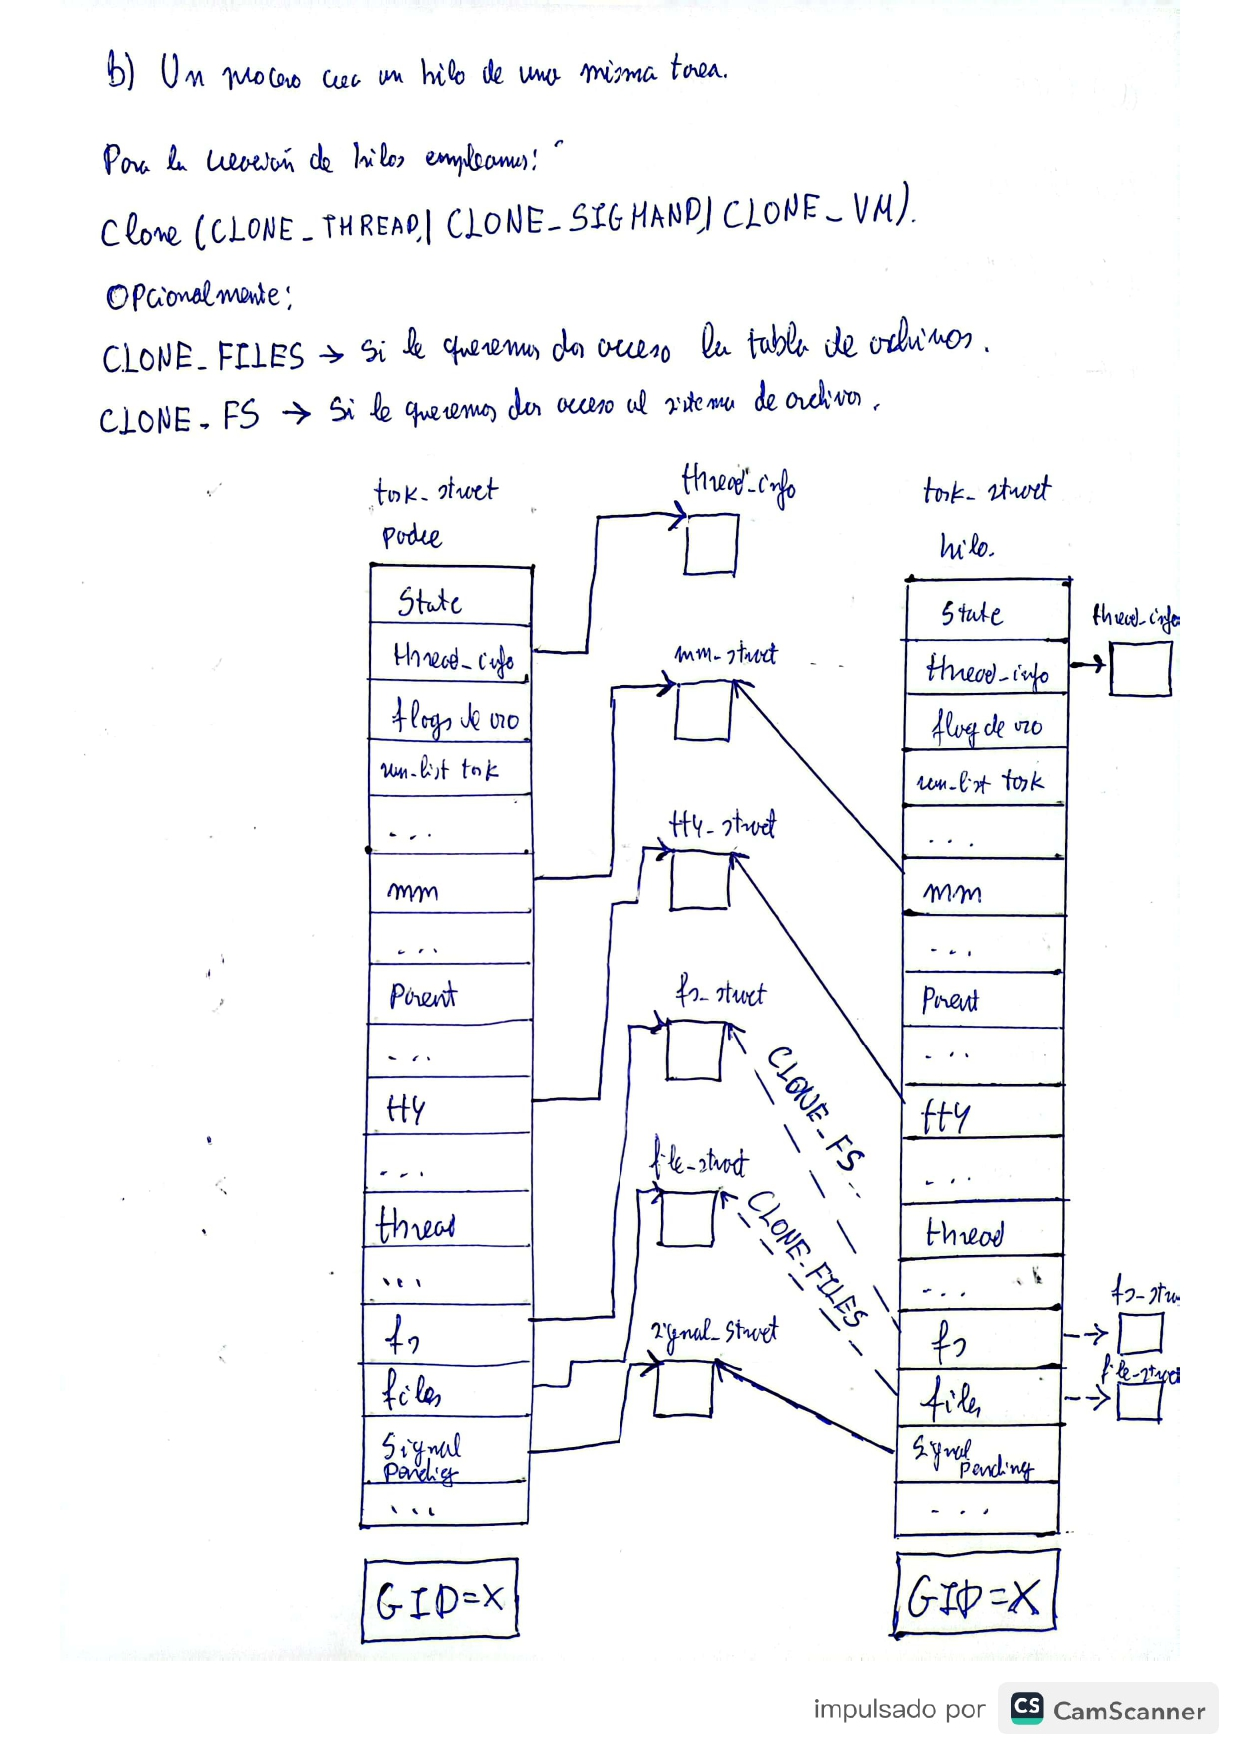 b) Un proceso crea un hilo de una misma tarea.
Para la creación de hilos empleamos:
Clone (CLONE_THREAD,| CLONE_SIGHAND,| CLONE_VM).
Opcionalmente:
CLONE_FILES → Si le queremos dar acceso la tabla de archivos.
CLONE_FS → Si le queremos dar acceso al sistema de archivos.
task_struct
Padre
State
thread_info
flags de uso
run_list task
...
mm
...
Parent
...
tty
...
thread
...
fs
files
Signal
Pending
...
GID=X
thread_info
mm_struct
tty_struct
fs_struct
file_struct
signal_struct
CLONE_FS
CLONE_FILES
task_struct
hilo.
State
thread_info
flag de uso
run_list task
...
mm
...
Parent
...
tty
...
thread
...
fs
files
Signal
Pending
...
GID=X
thread_info
fs_stru
file_struct
impulsado por CS CamScanner